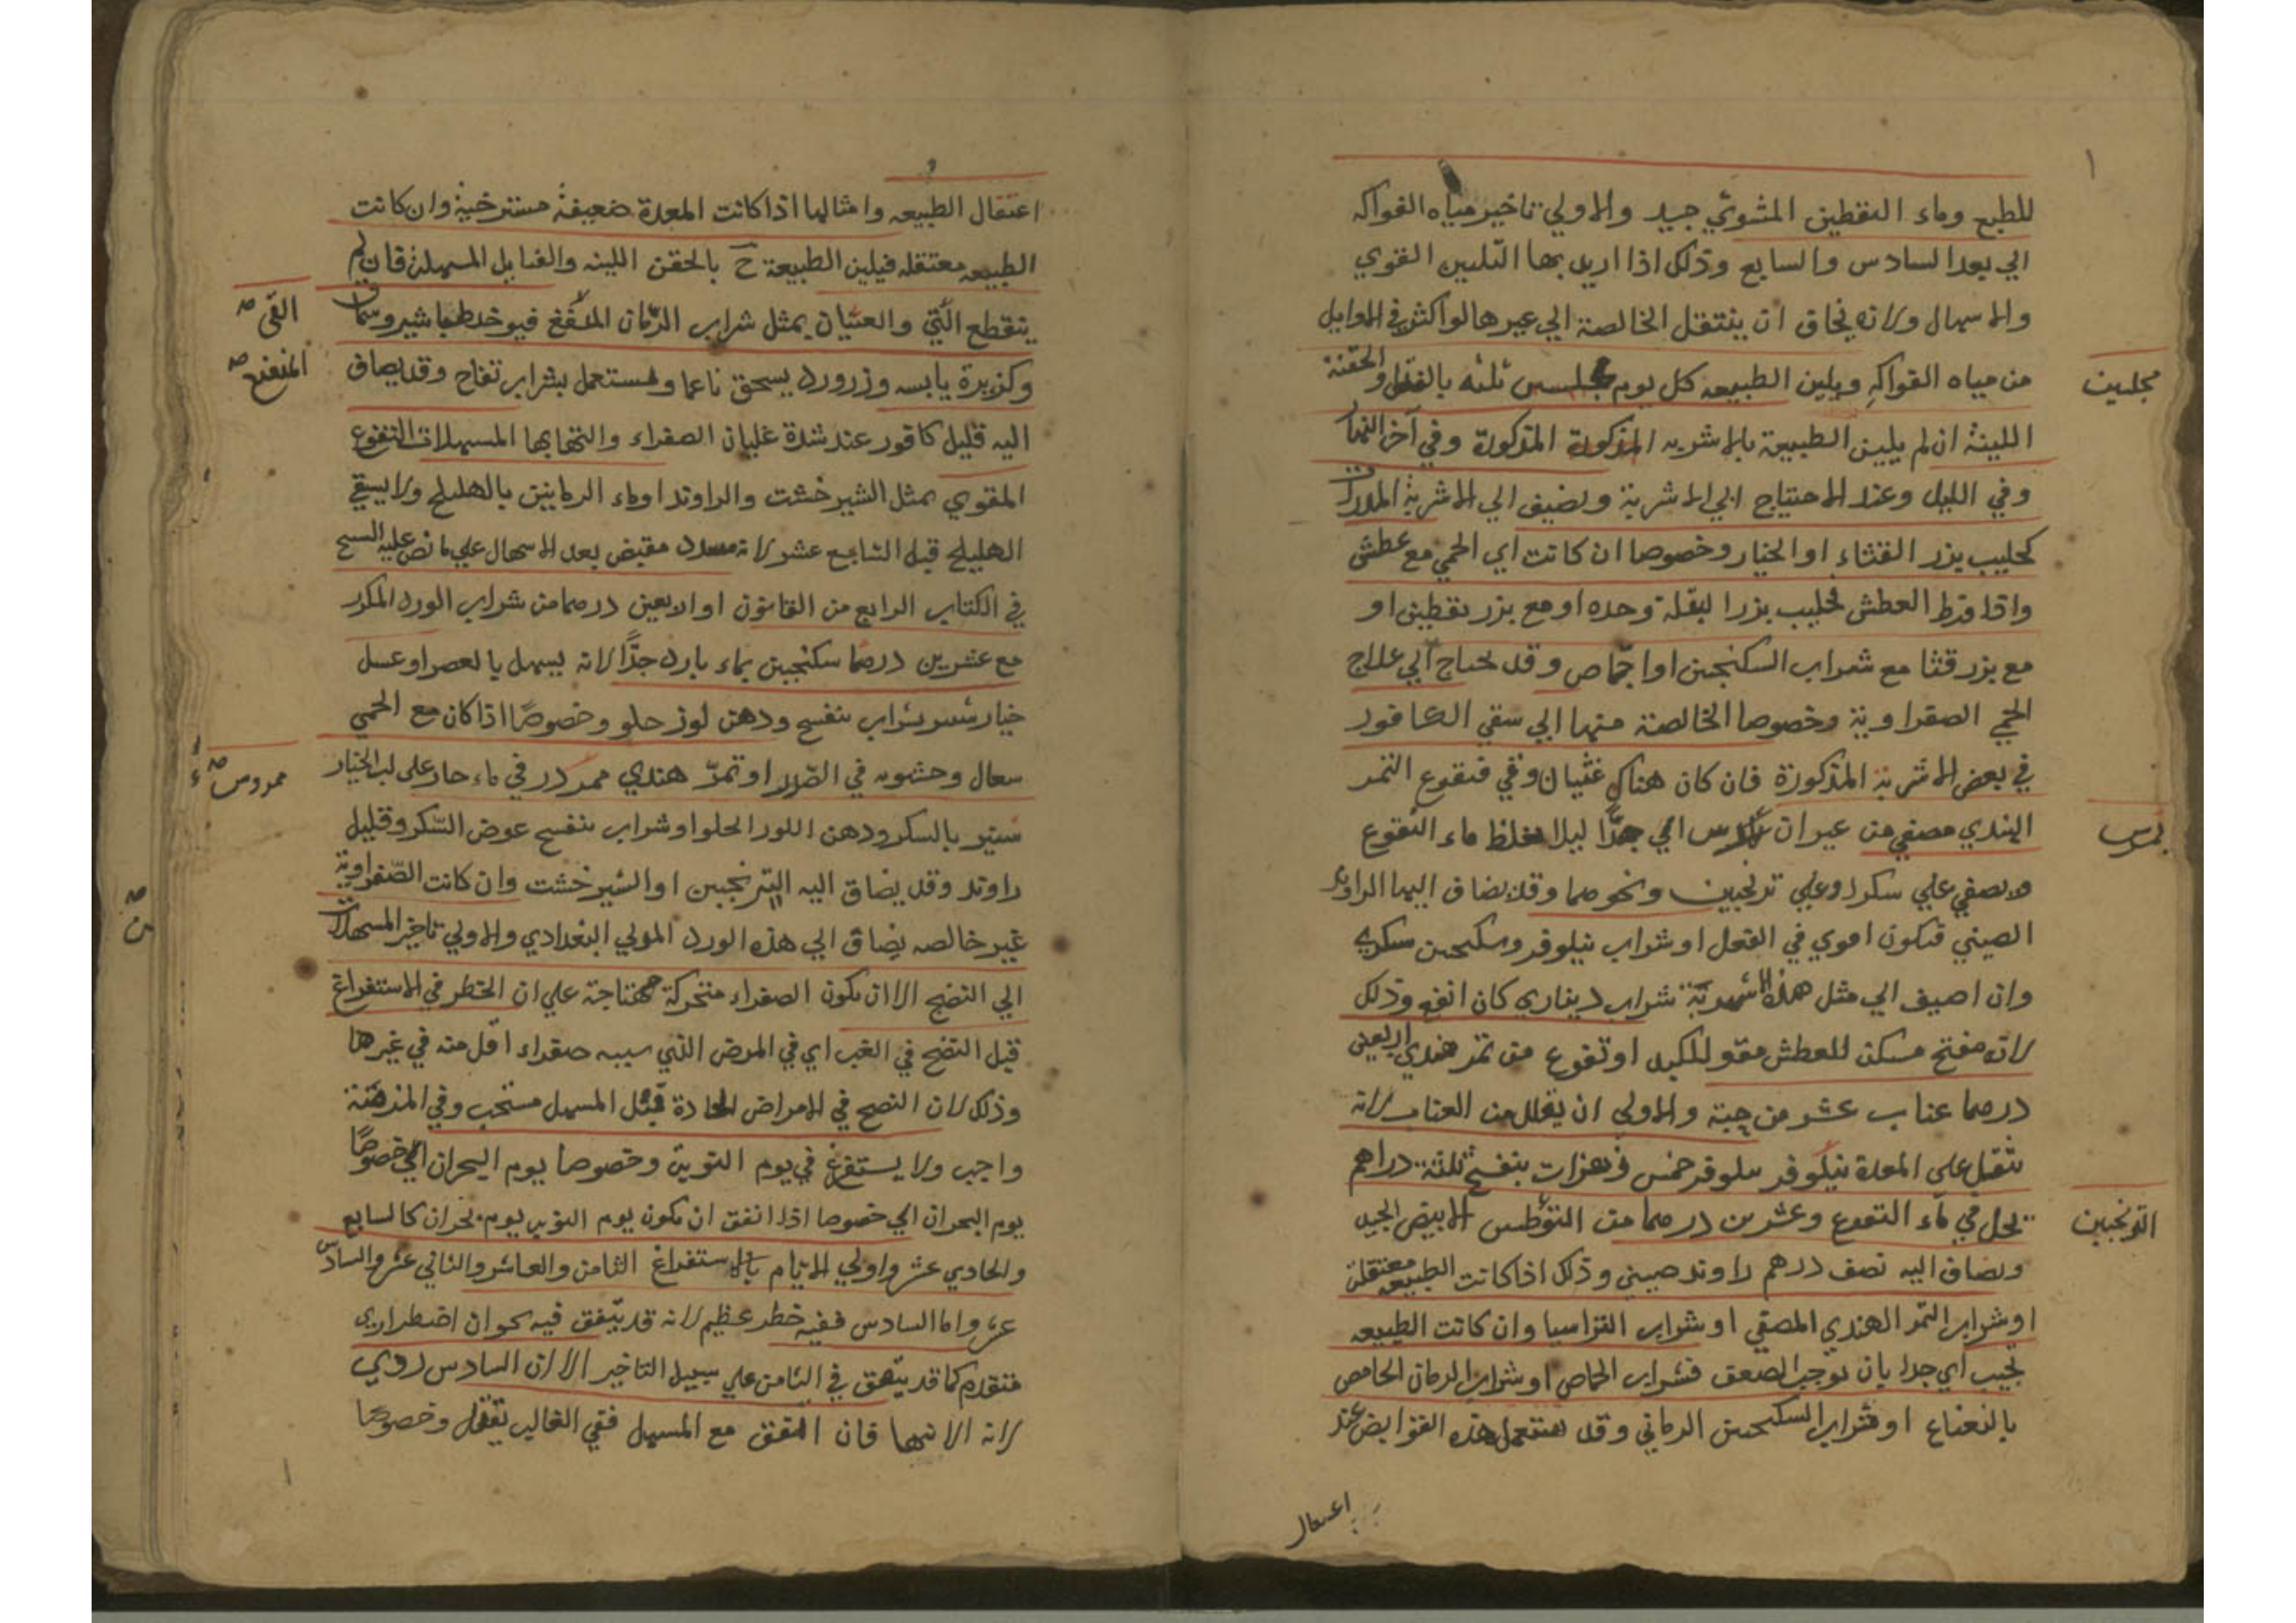 للطبع وماء اليقطين المشوي جيد والاولي تاخير مياه الفواكه
الي بعد السادس والسابع وذلك اذا اريد بها التليين القوي
والاسهال ولانه يخاف ان ينتقل الخالصة الي غيرها لو اكثر في الاوايل
من مياه الفواكه ويلين الطبيعه كل يوم مجلسين ثلثه بالفتل والحقنة
مجلسين
اللينة ان لم يلين الطبيعة بالاشربه المذكورة المذكورة وفي آخر النهار
وفي الليل وعند الاحتياج الي الاشربة ونضيف الي الاشربة المدرات
كحليب بزر القثاء او الخيار وخصوصا ان كانت اي الحمي مع عطش
واذا فرط العطش فحليب بزر البقلة وحده او مع بزر يقطين او
مع بزر قثا مع شراب السكنجبين او اجاص وقد يحتاج الي علاج
الحمي الصفراوية وخصوصا الخالصة منها الي سقي الكافور
في بعض الاشربة المذكورة فان كان هناك غثيان وقي فنقوع التمر
الهندي مصفي من غير ان يمرس اي جدا ليلا يغلظ ماء النقوع
يمرس
ويصفي علي سكر او علي ترنجبين ونحوهما وقد يضاف اليها الراوند
الصيني فيكون اقوي في الفعل او شراب نيلوفر وسكنجبين سكري
وان اضيف الي مثل هذه الاشربة شراب ديناري كان انفع وذلك
لانه مفتح مسكن للعطش مقو للكبد او نقوع من تمر هندي اربعين
درهما عناب عشرين حبة والاولي ان يقلل من العناب لانه
يثقل علي المعدة نيلوفر خمس زهرات بنفسج ثلثة دراهم
يحل في ماء النقوع وعشرين درهما من الابيض الجيد
الترنجبين
ويضاف اليه نصف درهم راوند صيني وذلك اذا كانت الطبيعة معتقلة
او شراب التمر الهندي المصفي او شراب القراسيا وان كانت الطبيعه
تجيب اي جدا بان يوجب الضعف فشراب الحماض او شراب الرمان الحامض
بالنعناع او شراب السكنجبين الرماني وقد يستعمل هذه القوابض عند
اعتقال
اعتقال الطبيعه وامثالها اذا كانت المعدة ضعيفة مسترخية وان كانت
الطبيعه معتقله فيلين الطبيعة ح بالحقن اللينه والفتايل المسهلة فان لم
ينقطع القي والغثيان بمثل شراب الرمان المنعنع فيوخذ طباشير وسماق
القي صه
المنعنع صه
وكزبرة يابسه وزرورد يسحق ناعما ويستعمل بشراب تفاح وقد يضاف
اليه قليل كافور عند شدة غليان الصفراء والتهابها المسهلات النقوع
المقوي بمثل الشيرخشت والراوند او ماء الرمانين بالهليلج ولا يسقي
الهليلج قبل السابع عشر لانه مقبض بعد الاسهال علي ما نص عليه الشيخ
في الكتاب الرابع من القانون او اربعين درهما من شراب الورد المكرر
مع عشرين درهما سكنجبين بماء بارد جدا لانه يسهل بالعصر او عسل
خيار شنبر بشراب بنفسج ودهن لوز حلو وخصوصا اذا كان مع الحمي
سعال وخشونه في الصدر او تمر هندي ممرود في ماء حار علي لب الخيار
ممروس صه
شنبر بالسكر ودهن اللوز الحلو او شراب بنفسج عوض السكر وقليل
راوند وقد يضاف اليه الترنجبين او الشيرخشت وان كانت الصفراوية
غير خالصه يضاف الي هذه الورد البغدادي والاولي تاخير المسهلات
الي النضج الا ان يكون الصفراء متحركة مهتاجة علي ان الخطر في الاستفراغ
قبل النضج في الغب اي في المرض الذي سببه صفراء اقل منه في غيرها
وذلك لان النضج في الامراض الحادة قبل المسهل مستحب وفي المزمنة
واجب ولا يستفرغ في يوم النوبة وخصوصا يوم البحران اي خصوصا
يوم البحران اي خصوصا اذا اتفق ان يكون يوم النوبه يوم بحران كالسابع
والحادي عشر واولي الايام بالاستفراغ الثامن والعاشر والثاني عشر والسادس
عشر واما السادس ففيه خطر عظيم لانه قد يتفق فيه بحران اضطراري
متقدم كما قد يتفق في الثامن علي سبيل التاخير الا ان السادس ردي
لانه الانتها فان اتفق مع المسهل ففي الغالب يقتل وخصوصا